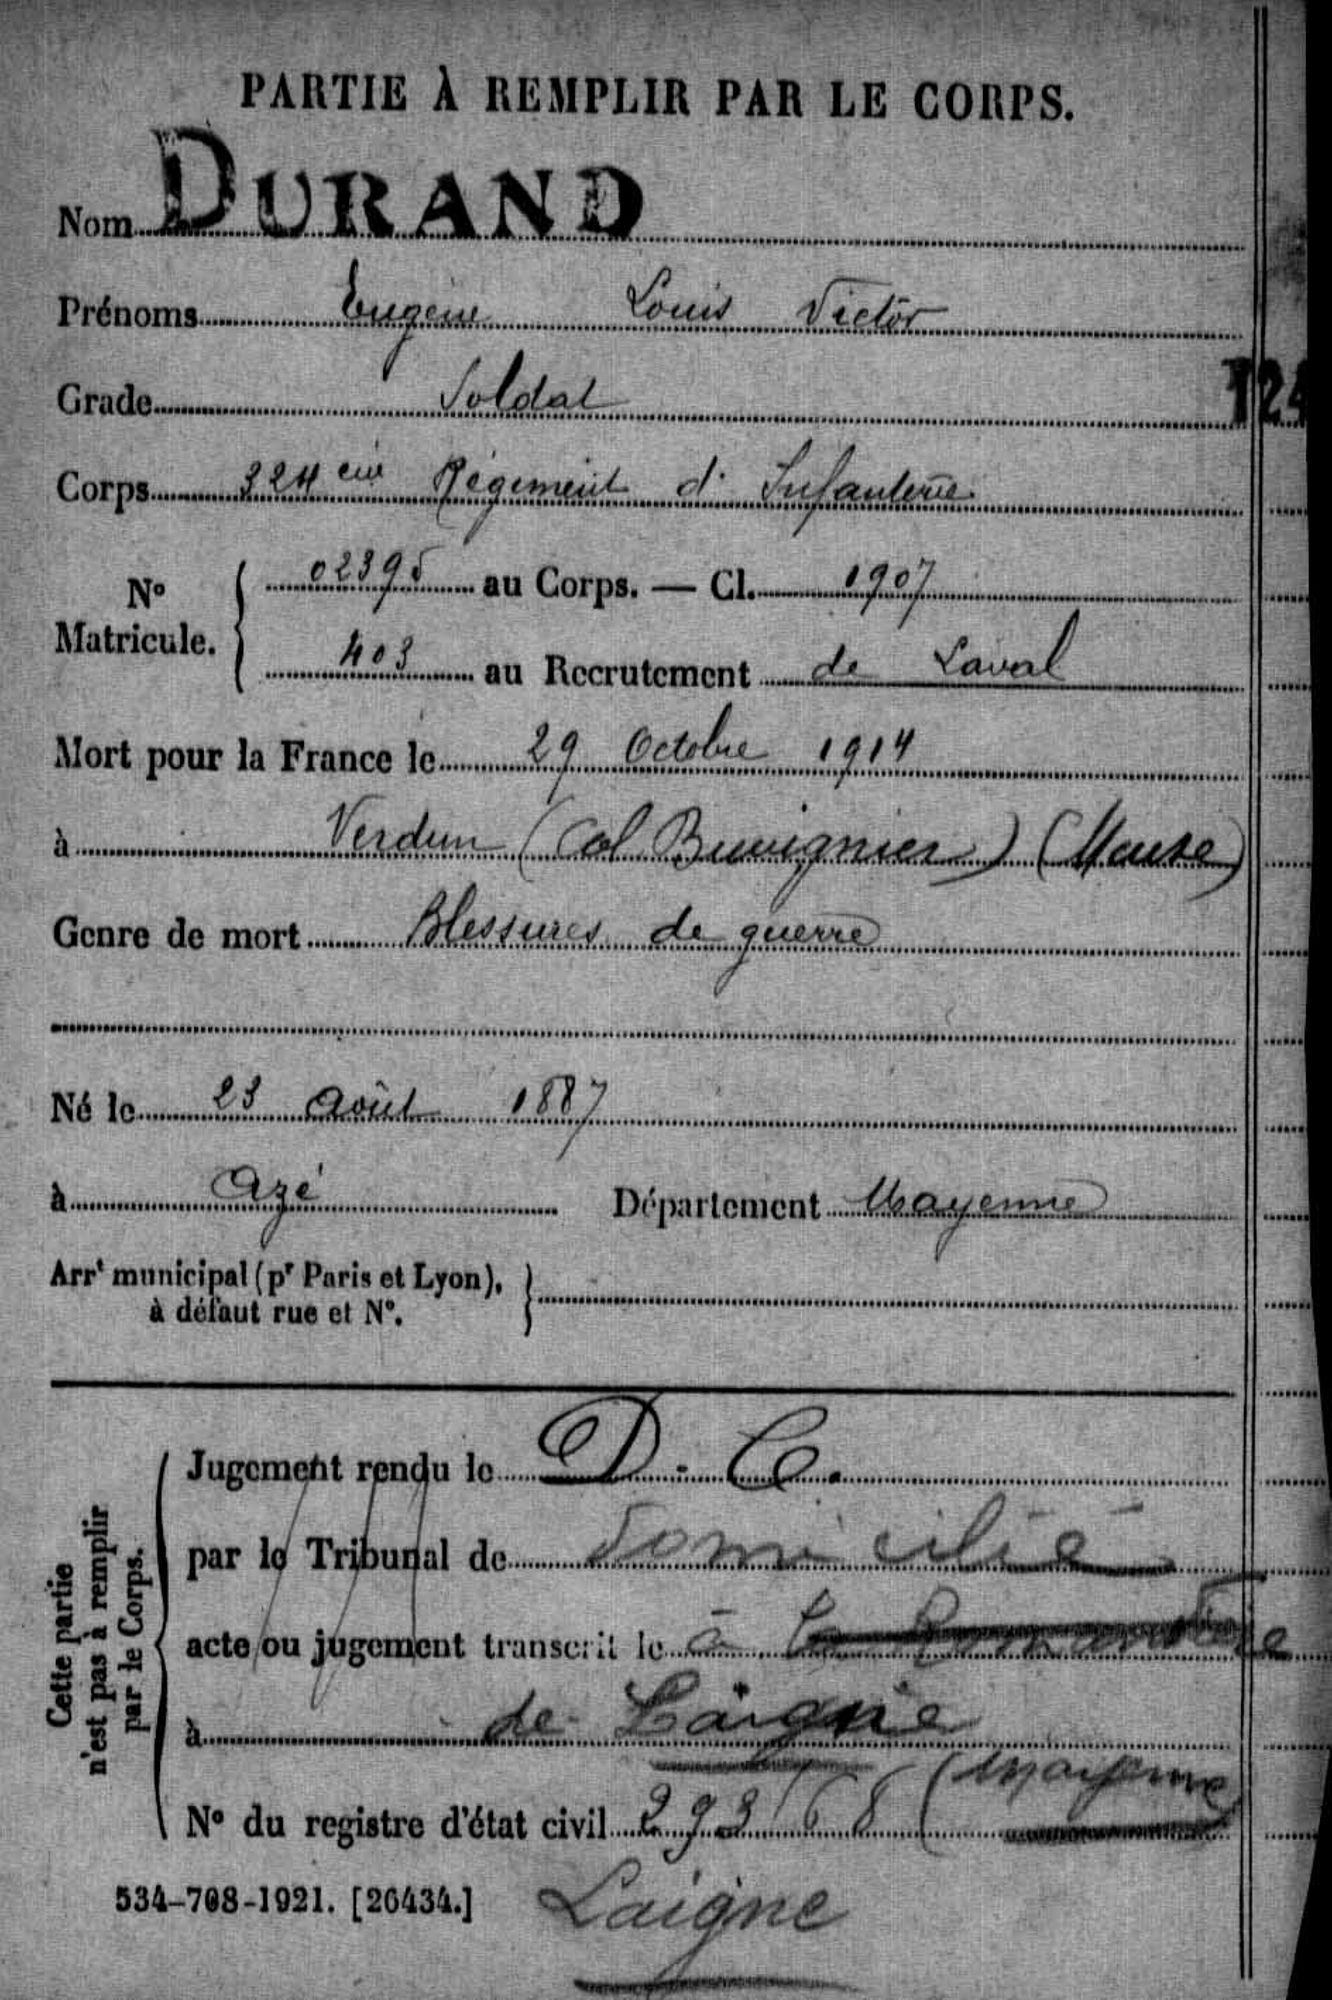 PARTIE À REMPLIR PAR LE CORPS.
Nom DURAND
Prénoms Eugène Louis Victor
Grade Soldat
124
Corps 324eme Régiment d'Infanterie
No Matricule. 02395 au Corps. — Cl. 1907
403 au Recrutement de Laval
Mort pour la France le 29 Octobre 1914
à Verdun (Col Buvignier) (Meuse)
Genre de mort Blessures de guerre
Né le 23 Août 1887
à Azé Département Mayenne
Arrt municipal (pr Paris et Lyon),
à défaut rue et No.
Cette partie
n'est pas à remplir
par le Corps.
Jugement rendu le D. C.
par le Tribunal de Domicilié
acte ou jugement transcrit le à la
à de Laigné
(Mayenne
No du registre d'état civil
534-708-1921. [26434.]
Laigne